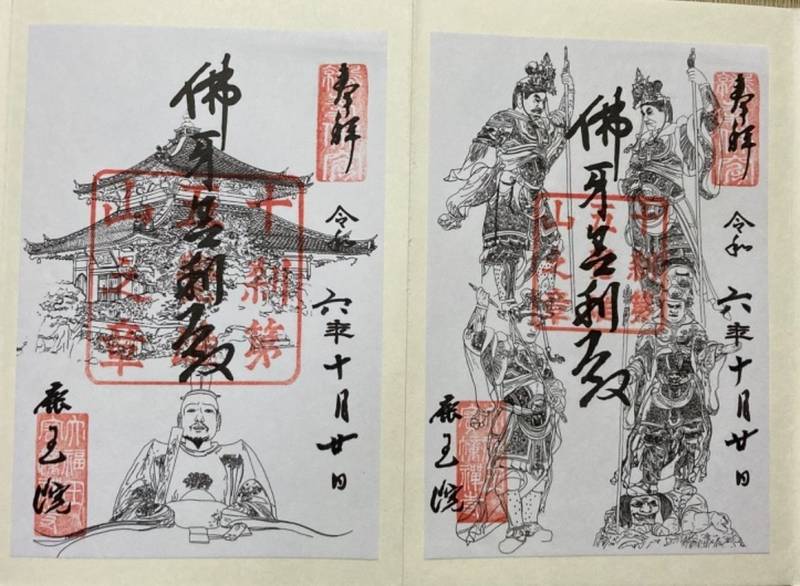 奉拝
令和六年十月廿日
佛牙舎利殿
鹿王院
十刹第
五
山之章
大福田
奉拝
令和六年十月廿日
佛牙舎利殿
鹿王院
十刹第
五
山之章